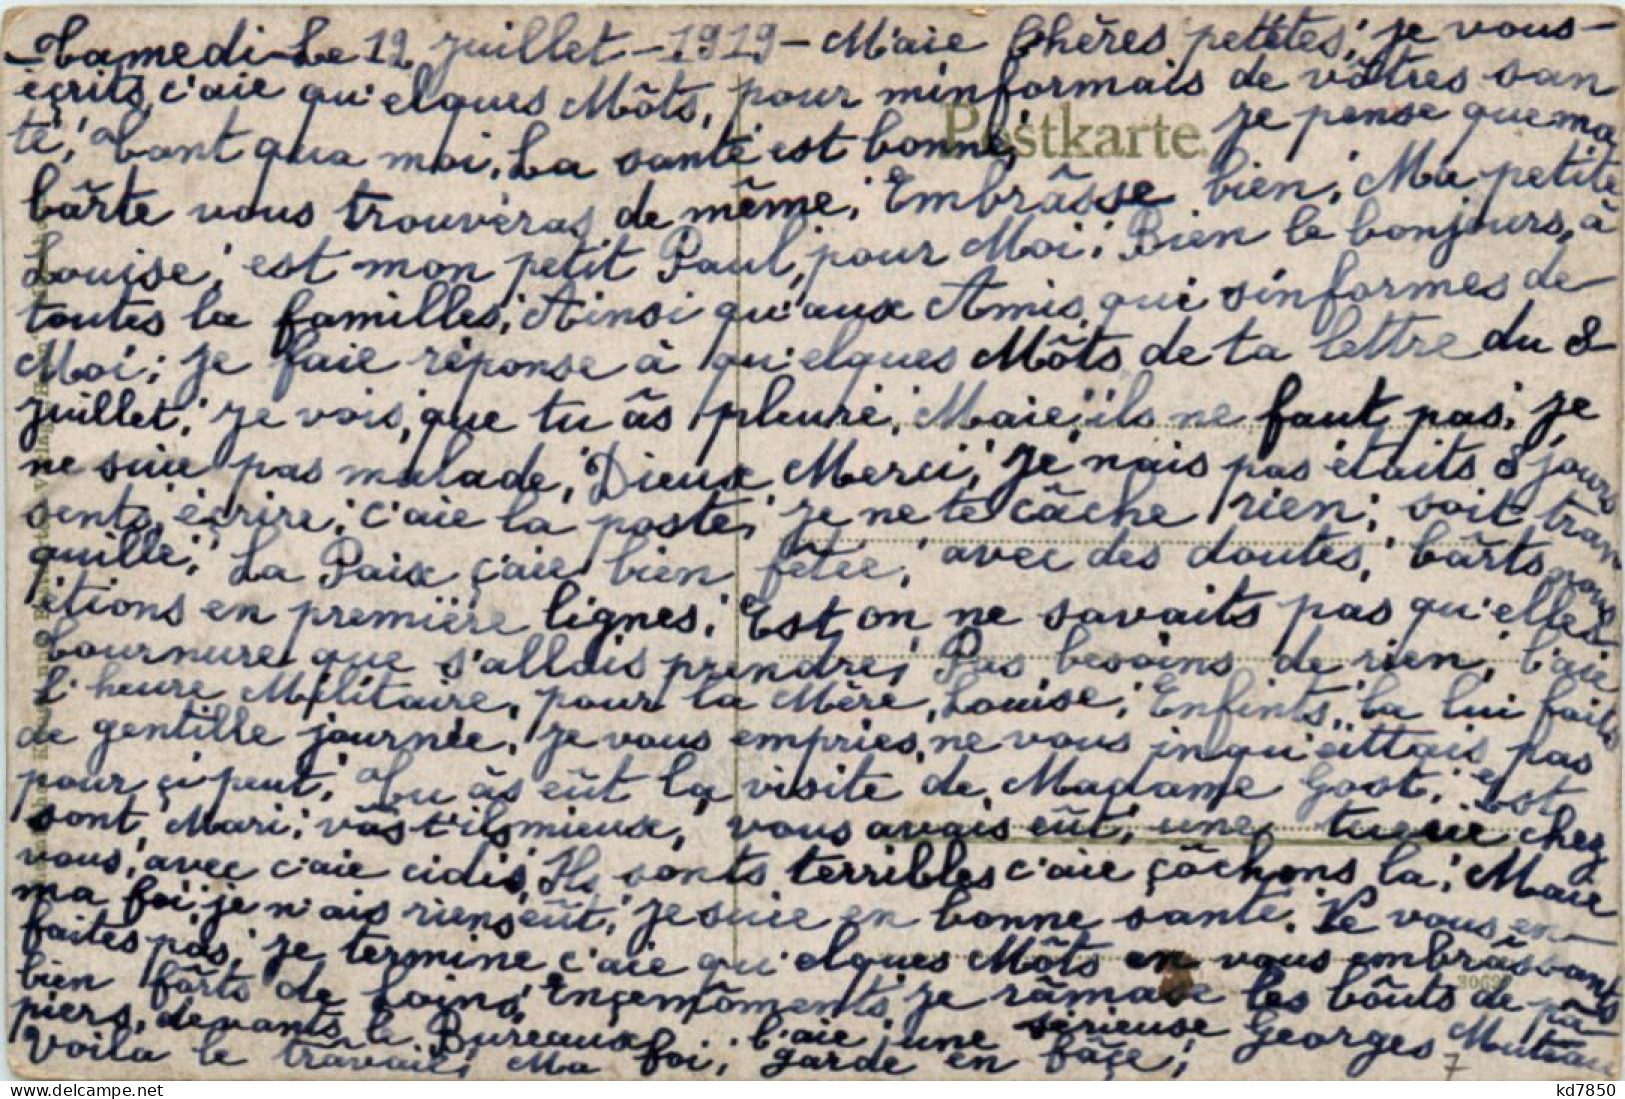 Samedi Le 12 juillet - 1919 - M'aie Chères petites; je vous
écrits, c'aie qu'elques Môts, pour m'informais de vôtres san
té, Tant qua moi. La santé est bonne, je pense que ma
Postkarte
cârte vous trouvèras de même, Embrâsse bien, Ma petite
Louise, est mon petit Paul, pour Moi; Bien le bonjours, à
toutes la familles, Ainsi qu'aux Amis, qui s'informes de
Moi; je faie réponse à qu'elques Môts de ta lettre du 8
juillet, je vois, que tu âs pleuré, Maie, ils ne faut pas, je
ne suie pas malade, Dieux Merci, je nais pas étaits 8 jours
sents, écrire, c'aie la poste, je ne te câche rien; soit tran
quille, La Paix ç'aie bien fêtée, avec des doutes, cârts nous
itions en première lignes, Est on ne savaits pas qu'elles
tournure que s'allais prendre, Pas besoins de rien, c'aie
l'heure Militaire, pour la Mère, Louise, Enfints, Ca lui faits
de gentille journée, je vous empries, ne vous inqu'ittais pas
pour çi peut, Tu âs eût la visite de Madame Gost, Est
sont Mari, vâs t'ils mieux, vous avais eût, une, tuerie chez
vous, avec c'aie cidis, Ils sonts terribles c'aie çôchons la, Maie
ma foi, je n'ais riens eût, je suie en bonne santé. Ne vous en
faites pas, je termine c'aie qu'elques Môts en vous embrâssants
bien fôrts de Loins, Ençemôments, je râmase les bôuts de pâ
30692
piers, devants le Bureaux, c'aie une sérieuse Georges Muteau
Voila le trâvaie, Ma foi, garde en fâçe;
7
kd7850